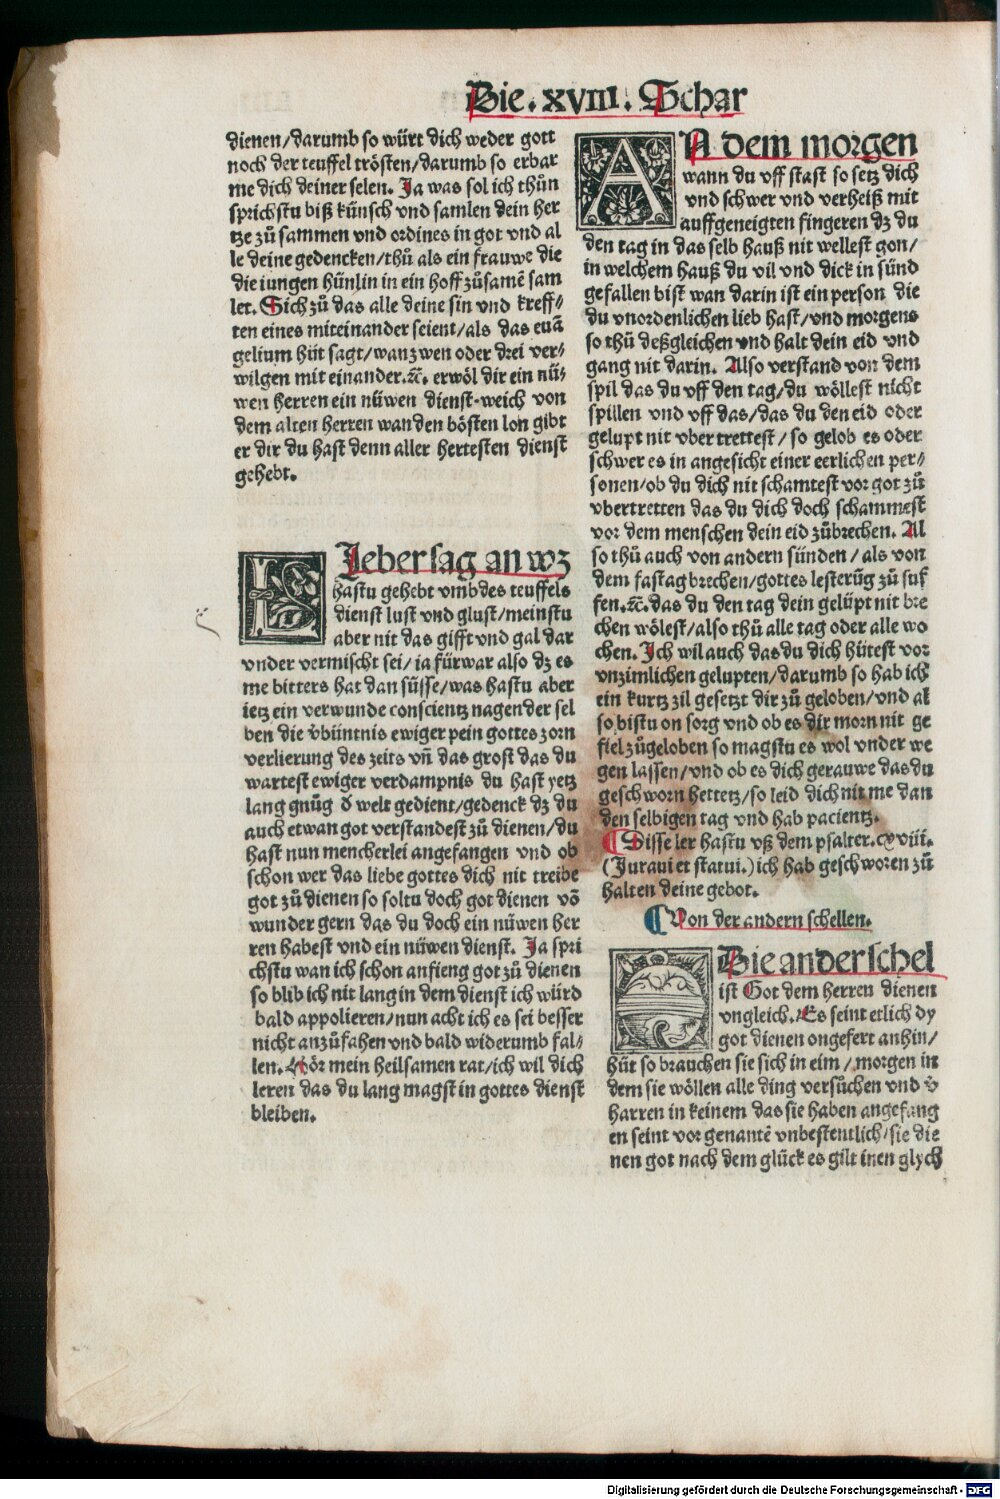 Die .XVIII. Schar
dienen/darumb so würt dich weder gott
noch der teuffel trösten/darumb so erbar
me dich deiner selen. Ja was sol ich thůn
sprichstu biß künsch vnd samlen dein her
tze zů sammen vnd ordines in got vnd al
le deine gedencken/thů als ein frauwe die
die iungen hünlin in ein hoff zůsamē sam
let. Sich zů das alle deine sin vnd kreff⸗
ten eines miteinander seient/als das euā
gelium hüt sagt/wan zwen oder drei ver⸗
wilgen mit einander.ꝛc. erwöl dir ein nü⸗
wen herren ein nüwen dienst-weich von
dem alten herren wan den bösten lon gibt
er dir du hast denn aller hertesten dienst
gehebt.
LJeber sag an wz
hastu gehebt vmb des teuffels
dienst lust vnd glust/meinstu
aber nit das gifft vnd gal dar
vnder vermischt sei/ia fürwar also dz es
me bitters hat dan süsse/was hastu aber
ietz ein verwunde conscientz nagender sel
ben die v̈büntnis ewiger pein gottes zorn
verlierung des zeits vn̄ das grost das du
wartest ewiger verdampnis du hast yetz
lang gnůg d̄ welt gedient/gedenck dz du
auch etwan got verstandest zů dienen/du
hast nun mencherlei angefangen vnd ob
schon wer das liebe gottes dich nit treibe
got zů dienen so soltu doch got dienen vō
wunder gern das du doch ein nüwen her
ren habest vnd ein nüwen dienst. Ja spri
chstu wan ich schon anfieng got zů dienen
so blib ich nit lang in dem dienst ich würd
bald appolieren/nun acht ich es sei besser
nicht anzůfahen vnd bald widerumb fal⸗
len. Hör mein heilsamen rat/ich wil dich
leren das du lang magst in gottes dienst
bleiben.
AN dem morgen
wann du vff stast so setz dich
vnd schwer vnd verheiß mit
auffgeneigten fingeren dz du
den tag in das selb hauß nit wellest gon/
in welchem hauß du vil vnd dick in sünd
gefallen bist wan darin ist ein person die
du vnordenlichen lieb hast/vnd morgens
so thů deßgleichen vnd halt dein eid vnd
gang nit darin. Also verstand von dem
spil das du vff den tag/du wöllest nicht
spillen vnd vff das/das du den eid oder
gelupt nit vbertrettest/so gelob es oder
schwer es in angesicht einer eerlichen per⸗
sonen/ob du dich nit schamtest vor got zů
vbertretten das du dich doch schammest
vor dem menschen dein eid zůbrechen. Al
so thů auch von andern sünden/als von
dem fastag brechen/gottes lesterūg zů suf
fen.ꝛc. das du den tag dein gelüpt nit bre
chen wölest/also thů alle tag oder alle wo
chen. Ich wil auch das du dich hütest vor
vnzimlichen gelupten/darumb so hab ich
ein kurtz zil gesetzt dir zů geloben/vnd al
so bistu on sorg vnd ob es dir morn nit ge
fiel zůgeloben so magstu es wol vnder we
gen lassen/vnd ob es dich gerauwe das du
geschworn hettetz/so leid dich nit me dan
den selbigen tag vnd hab pacientz.
¶ Disse ler hastu vß dem psalter.cxviii.
(Juraui et statui.) ich hab geschworen zů
halten deine gebot.
¶ Von der andern schellen.
DJe ander schel
ist Got dem herren dienen
vngleich. Es seint etlich dy
got dienen ongefert anhin/
hüt so brauchen sie sich in eim/morgen in
dem sie wöllen alle ding versůchen vnd v̄
harren in keinem das sie haben angefang
en seint vor genantē vnbestentlich/sie die
nen got nach dem glück es gilt inen glych
Digitalisierung gefördert durch die Deutsche Forschungsgemeinschaft - DFG